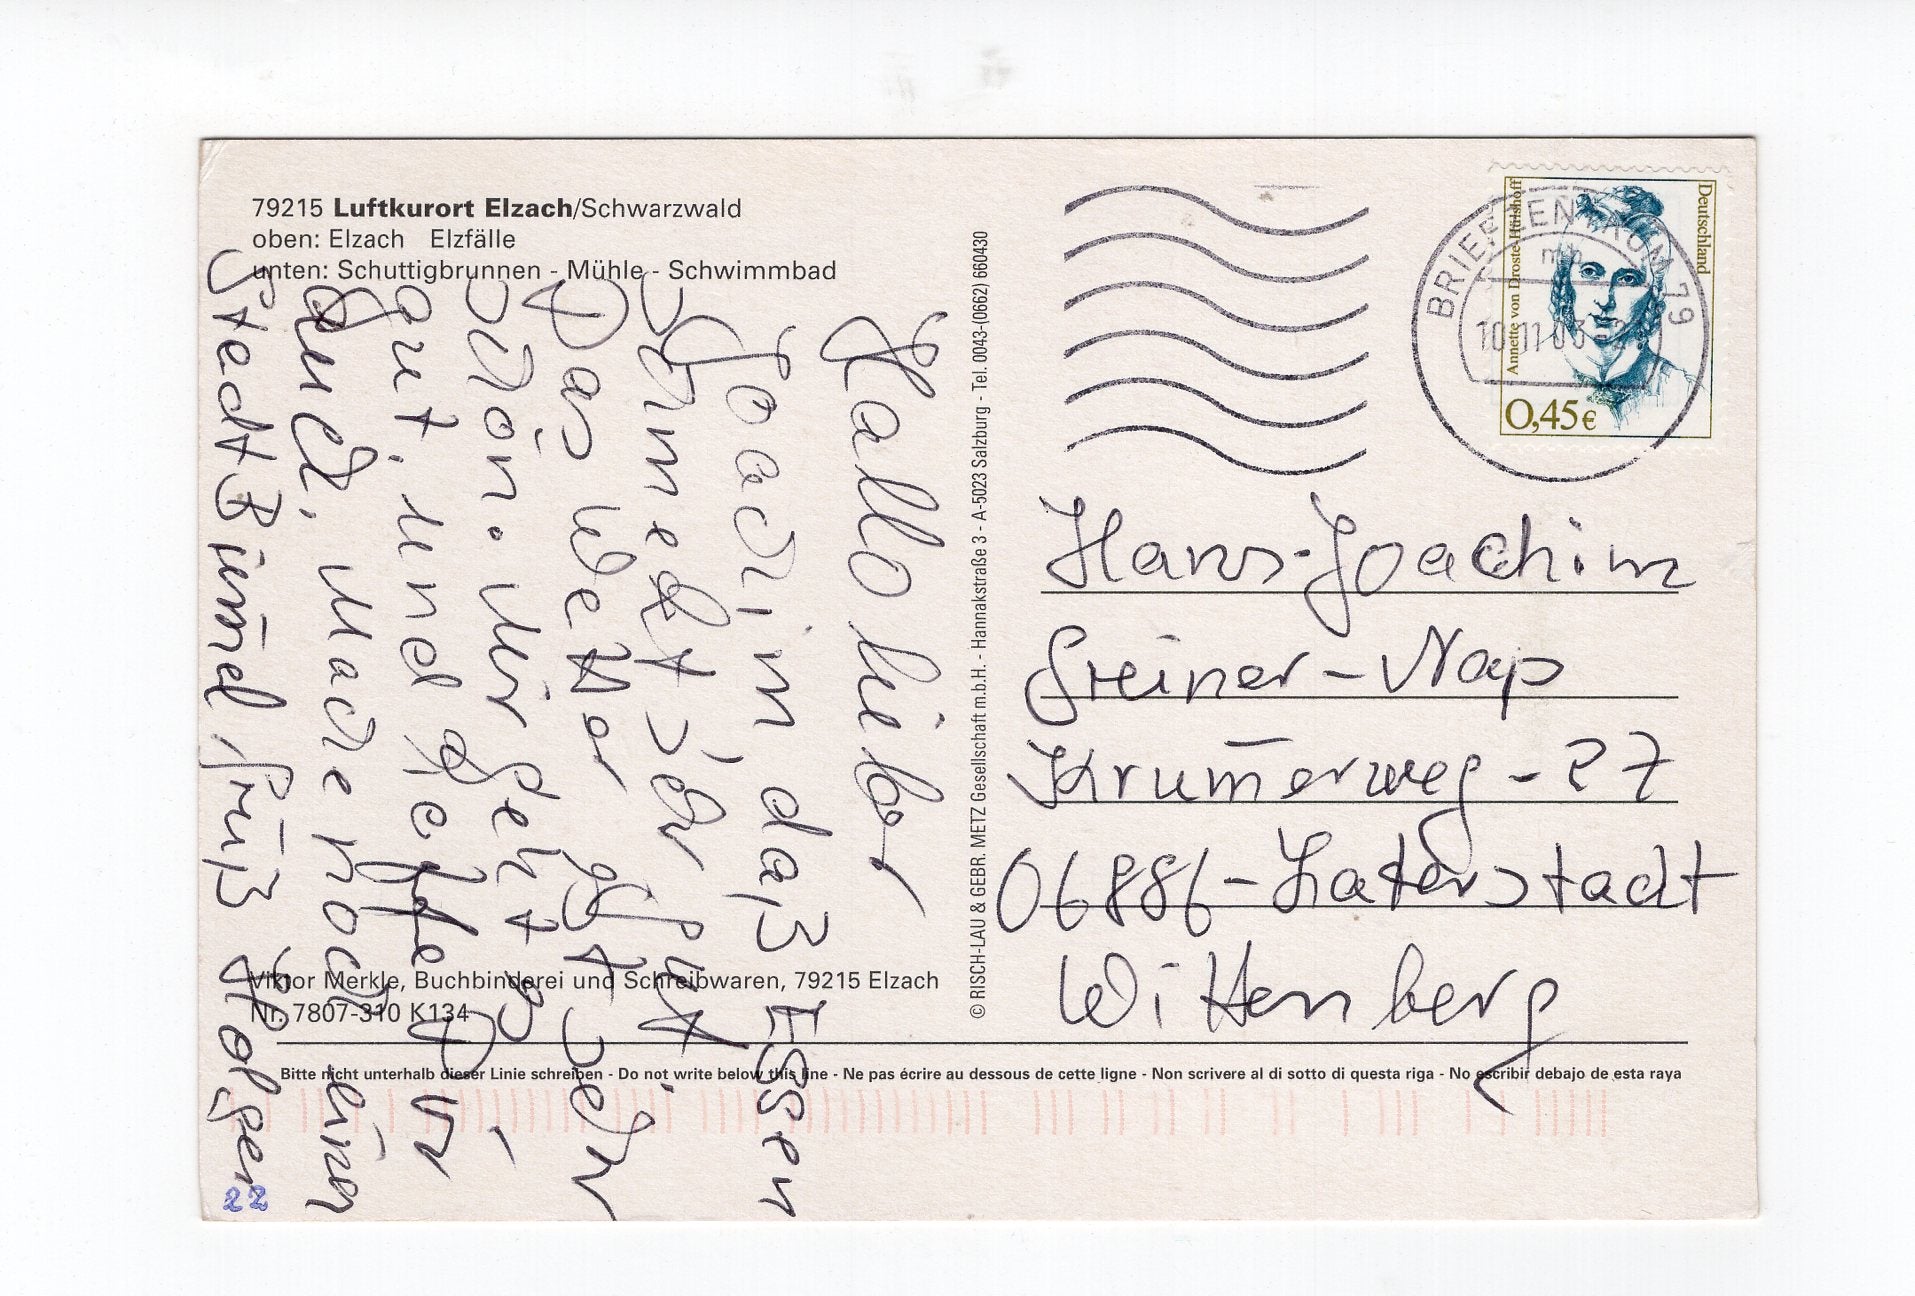 79215 Luftkurort Elzach/Schwarzwald
oben: Elzach Elzfälle
unten: Schuttigbrunnen - Mühle - Schwimmbad
Hallo lieber
Joachim, daß Essen
Schmeckt sehr gut
Das Wetter ist sehr
schön. Mir geht es
gut, und Dir
auch. Mache noch einen
Stadt Bum̄el, Gruß Holger
Viktor Merkle, Buchbinderei und Schreibwaren, 79215 Elzach
Nr. 7807-310 K134
22
© RISCH-LAU & GEBR. METZ Gesellschaft m.b.H. - Hannakstraße 3 - A-5023 Salzburg - Tel. 0043-(0662) 660430
Deutschland
Annette von Droste-Hülshoff
0,45€
BRIEFZENTRUM 79
mb
10.11.03
Hans-Joachim
Greiner-Nap
Krum̄erweg - 27
06886-Luterstadt
Wittenberg
Bitte nicht unterhalb dieser Linie schreiben - Do not write below this line - Ne pas écrire au dessous de cette ligne - Non scrivere al di sotto di questa riga - No escribir debajo de esta raya